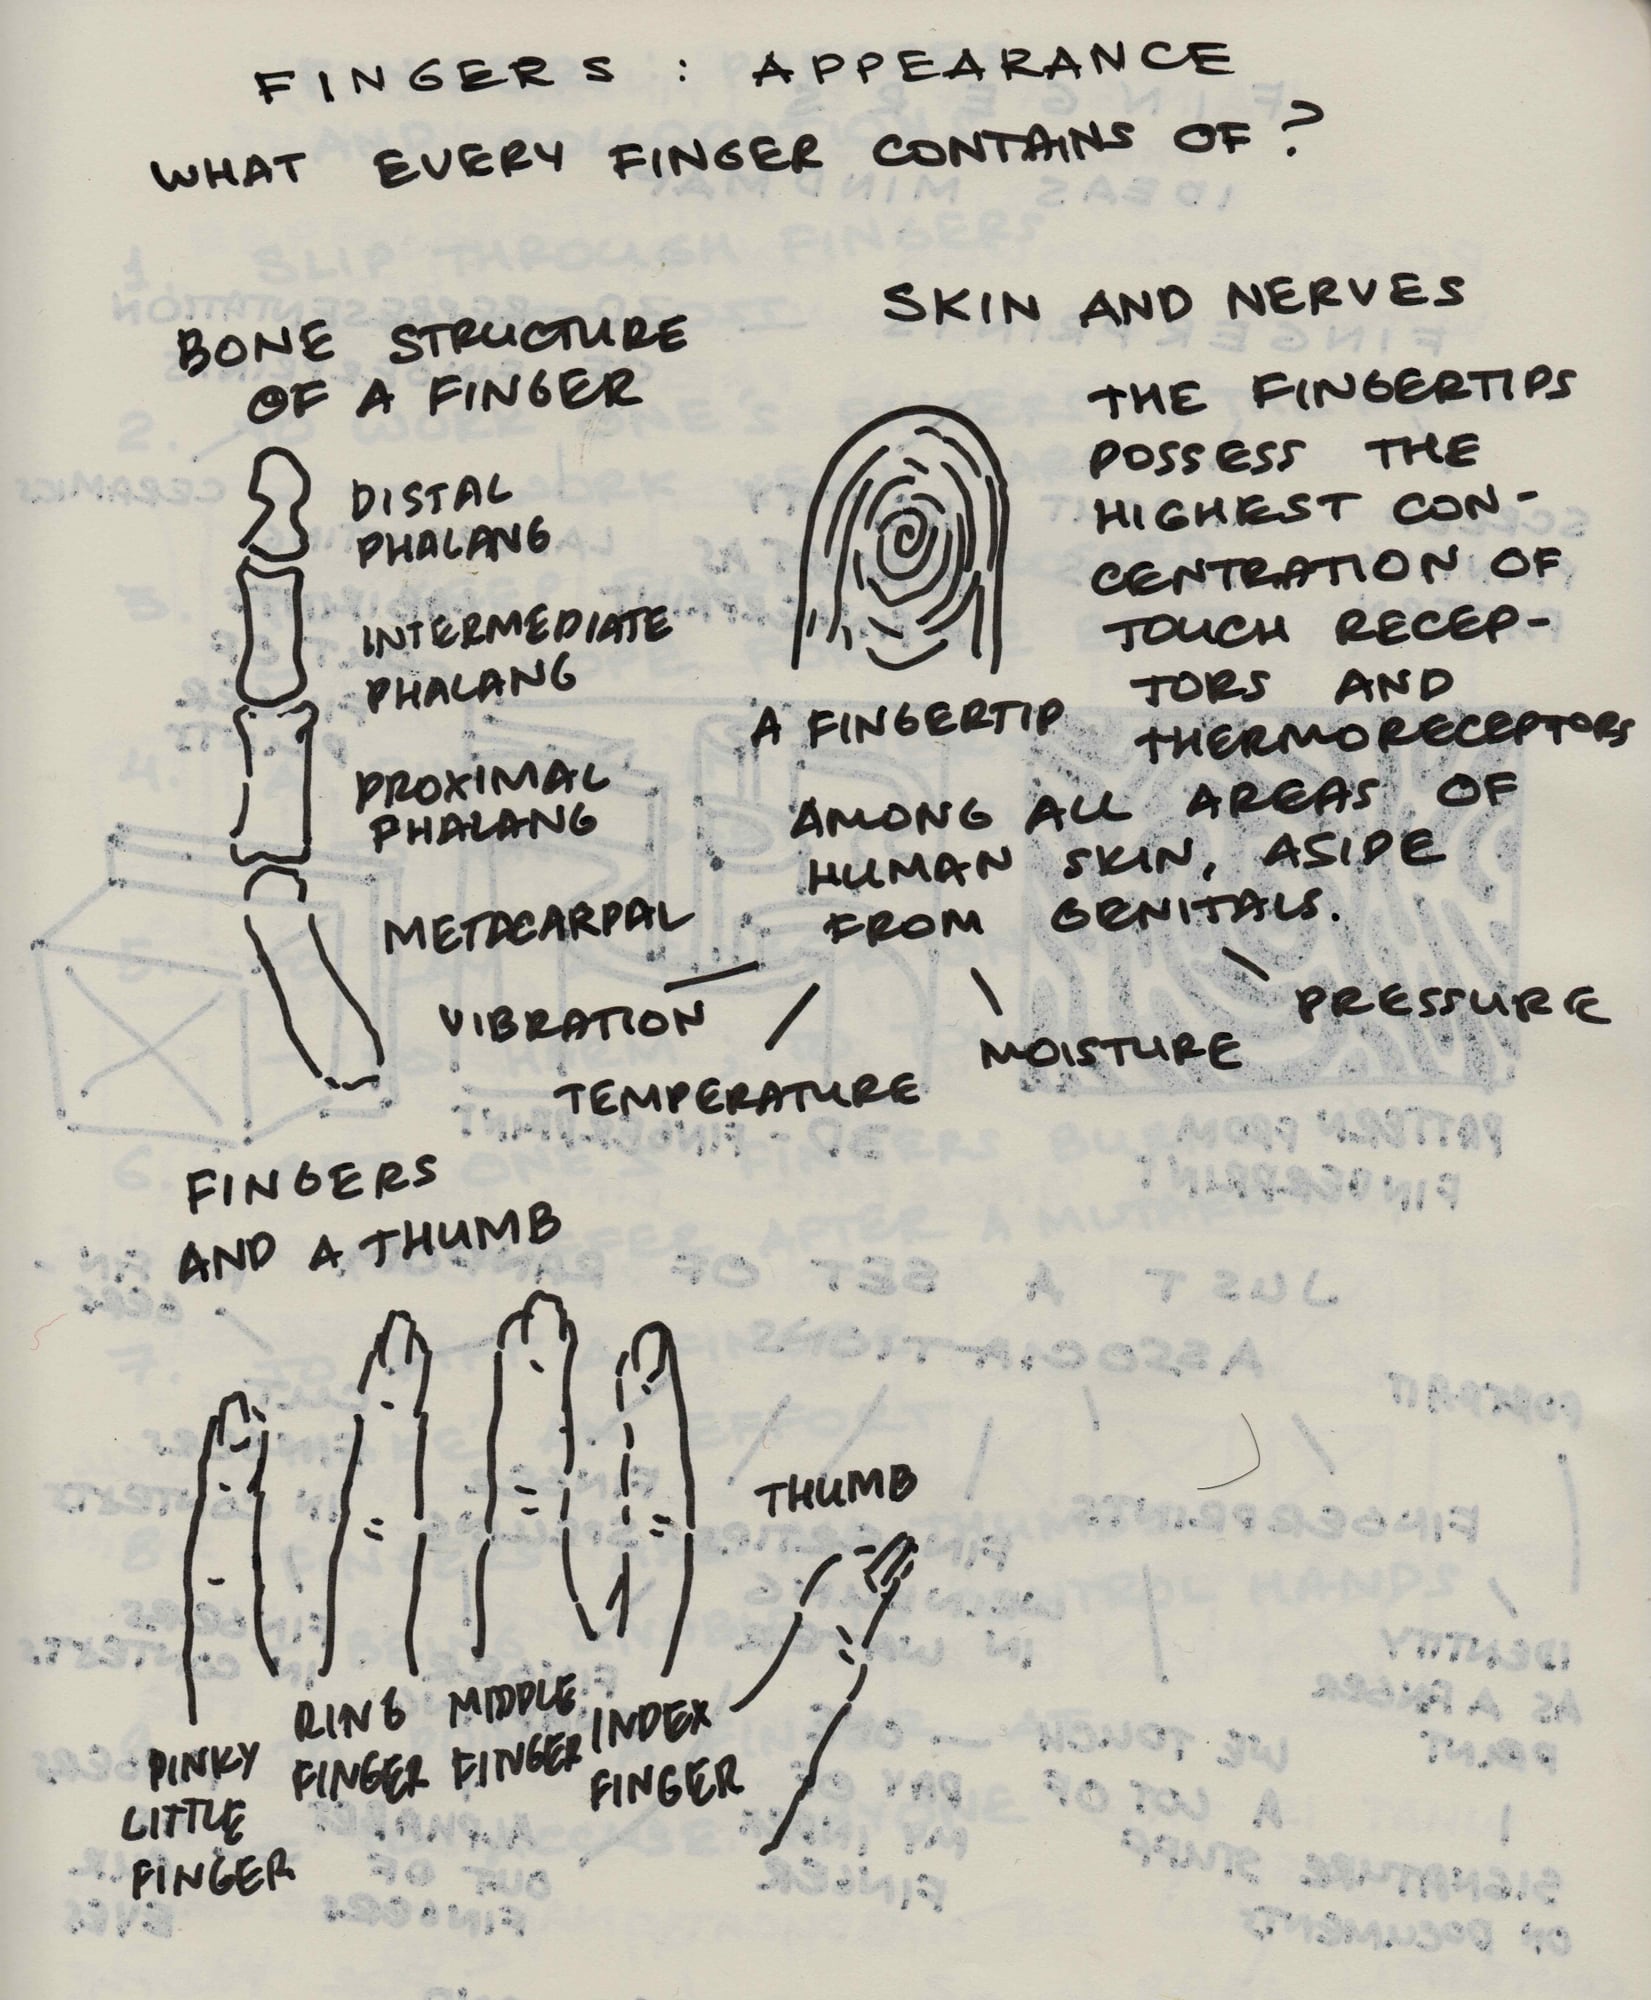 FINGERS : APPEARANCE
WHAT EVERY FINGER CONTAINS OF?
BONE STRUCTURE
OF A FINGER
DISTAL
PHALANG
INTERMEDIATE
PHALANG
PROXIMAL
PHALANG
METACARPAL
SKIN AND NERVES
A FINGERTIP
THE FINGERTIPS
POSSESS THE
HIGHEST CON-
CENTRATION OF
TOUCH RECEP-
TORS AND
THERMORECEPTORS
AMONG ALL AREAS OF
HUMAN SKIN, ASIDE
FROM GENITALS.
VIBRATION
TEMPERATURE
MOISTURE
PRESSURE
FINGERS
AND A THUMB
PINKY
LITTLE
FINGER
RING
FINGER
MIDDLE
FINGER
INDEX
FINGER
THUMB